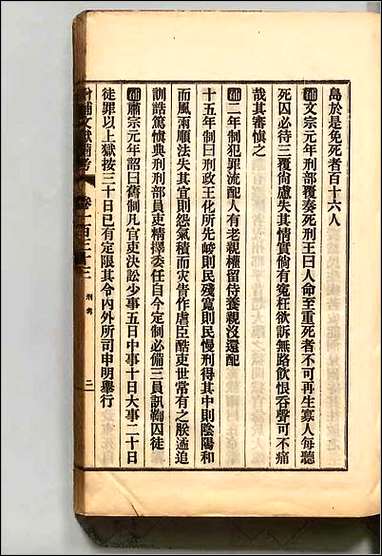 島於是免死者百十六人
補文宗元年刑部覆奏死刑王曰人命至重死者不可再生寡人每聽
死囚必待三覆尙慮失其情實倘有寃枉欲訴無路飮恨吞聲可不痛
哉其審愼之
補二年制犯罪流配人有老親權留侍養親沒還配
十五年制曰刑政王化所先峻則民殘寬則民慢刑得其中則陰陽和
而風雨順法失其宜則怨氣積而灾眚作虐臣酷吏世常有之朕遹追
訓誥篤愼典刑刑部員吏精擇委任自今定制必備三員訊鞫囚徒
補肅宗元年詔曰舊制凡官吏決訟少事五日中事十日大事二十日
徒罪以上獄按三十日已有定限其令內外所司申明舉行
增補文獻備考 卷一百三十三 刑考 二